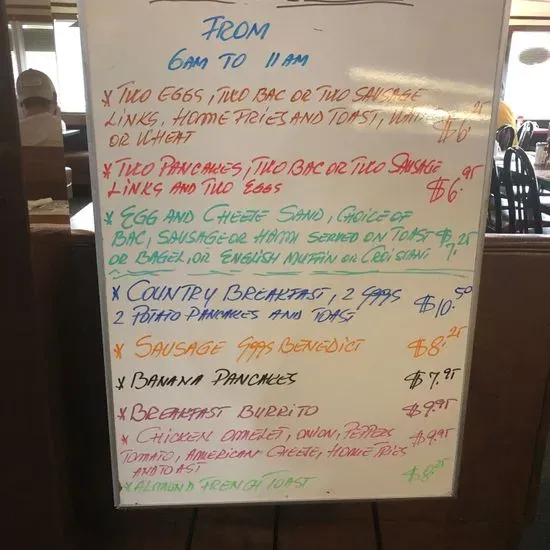 FROM
6AM TO 11AM
* TWO EGGS, TWO BAC OR TWO SAUSAGE
LINKS, HOME FRIES AND TOAST, WHITE $6.25
OR WHEAT
* TWO PANCAKES, TWO BAC OR TWO SAUSAGE
LINKS AND TWO EGGS $6.95
* EGG AND CHEESE SAND, CHOICE OF
BAC, SAUSAGE OR HAM SERVED ON TOAST $7.25
OR BAGEL, OR ENGLISH MUFFIN OR CROISIANT
* COUNTRY BREAKFAST, 2 EGGS $10.50
2 POTATO PANCAKES AND TOAST
* SAUSAGE EGGS BENEDICT $8.25
* BANANA PANCAKES $7.95
* BREAKFAST BURRITO $9.95
* CHICKEN OMELET, ONION, PEPPERS $9.95
TOMATO, AMERICAN CHEESE, HOME FRIES
AND TOAST
* ALMOND FRENCH TOAST $8.25